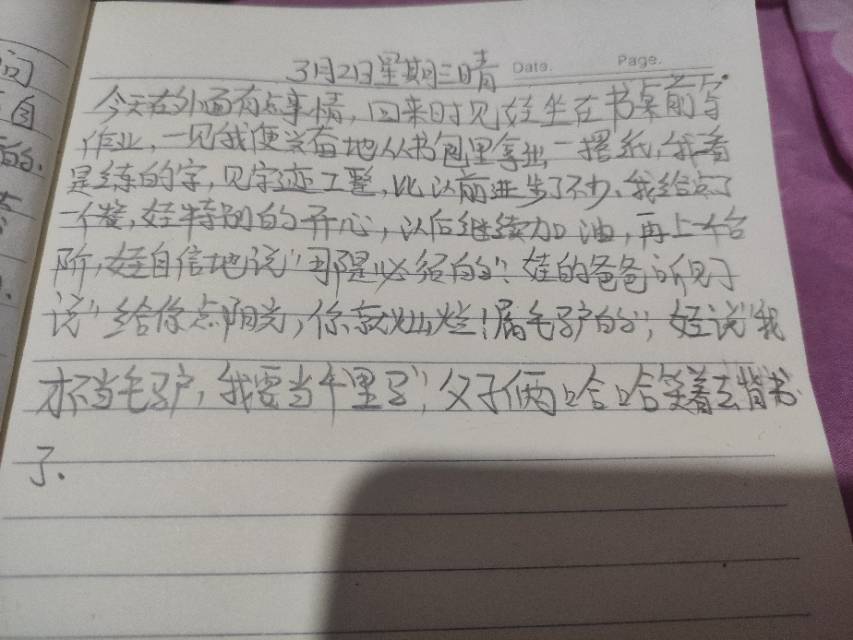 3月2日星期三晴 Date. Page.
今天在外面有点事情,回来时见娃坐在书桌前写
作业,一见我便兴奋地从书包里拿出一摞纸,我看
是练的字,见字迹工整,比以前进步了不少,我给点了
一个赞,娃特别的开心,以后继续加油,再上一个台
阶,娃自信地说"那是必须的"。娃的爸爸听见了
说"给你点阳光,你就灿烂!属毛驴的",娃说"我
才不当毛驴,我要当千里马",父子俩哈哈笑着去背书
了.
问
自
的.